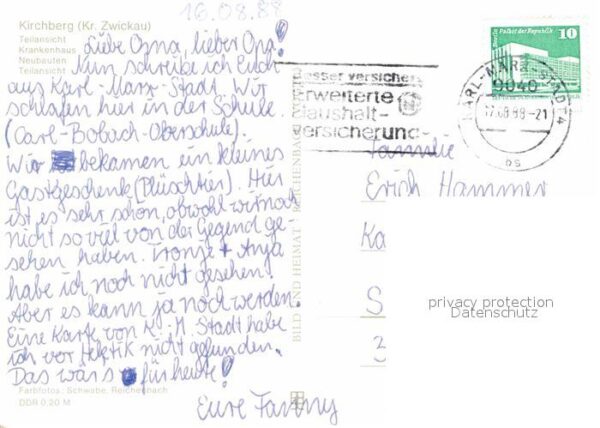 16.08.88
Kirchberg (Kr. Zwickau)
Teilansicht
Krankenhaus
Neubauten
Teilansicht
Liebe Oma, lieber Opa!
Nun schreibe ich Euch
aus Karl-Marx-Stadt. Wir
schlafen hier in der Schule
(Carl-Bobach-Oberschule).
Wir bekamen ein kleines
Gastgeschenk (Plüschtier). Hier
ist es sehr schön, obwohl wir noch
nicht so viel von der Gegend ge-
sehen haben. + Anja
habe ich noch nicht gesehen.
Aber es kann ja noch werden.
Eine Karte von K.-M. Stadt habe
ich vor Hektik nicht gefunden.
Das wärs für heute!
Eure
Farbfotos: Schwabe, Reichenbach
DDR 0,20 M
BILD UND HEIMAT REICHENBACH
besser versichert
erweiterte
Haushalt-
versicherung
KARL-MARX-STADT 4
9040
17.08.88-21
Berlin Palast der Republik
10
DDR
Familie
Erich Hammer
Ka
S
3
privacy protection
Datenschutz